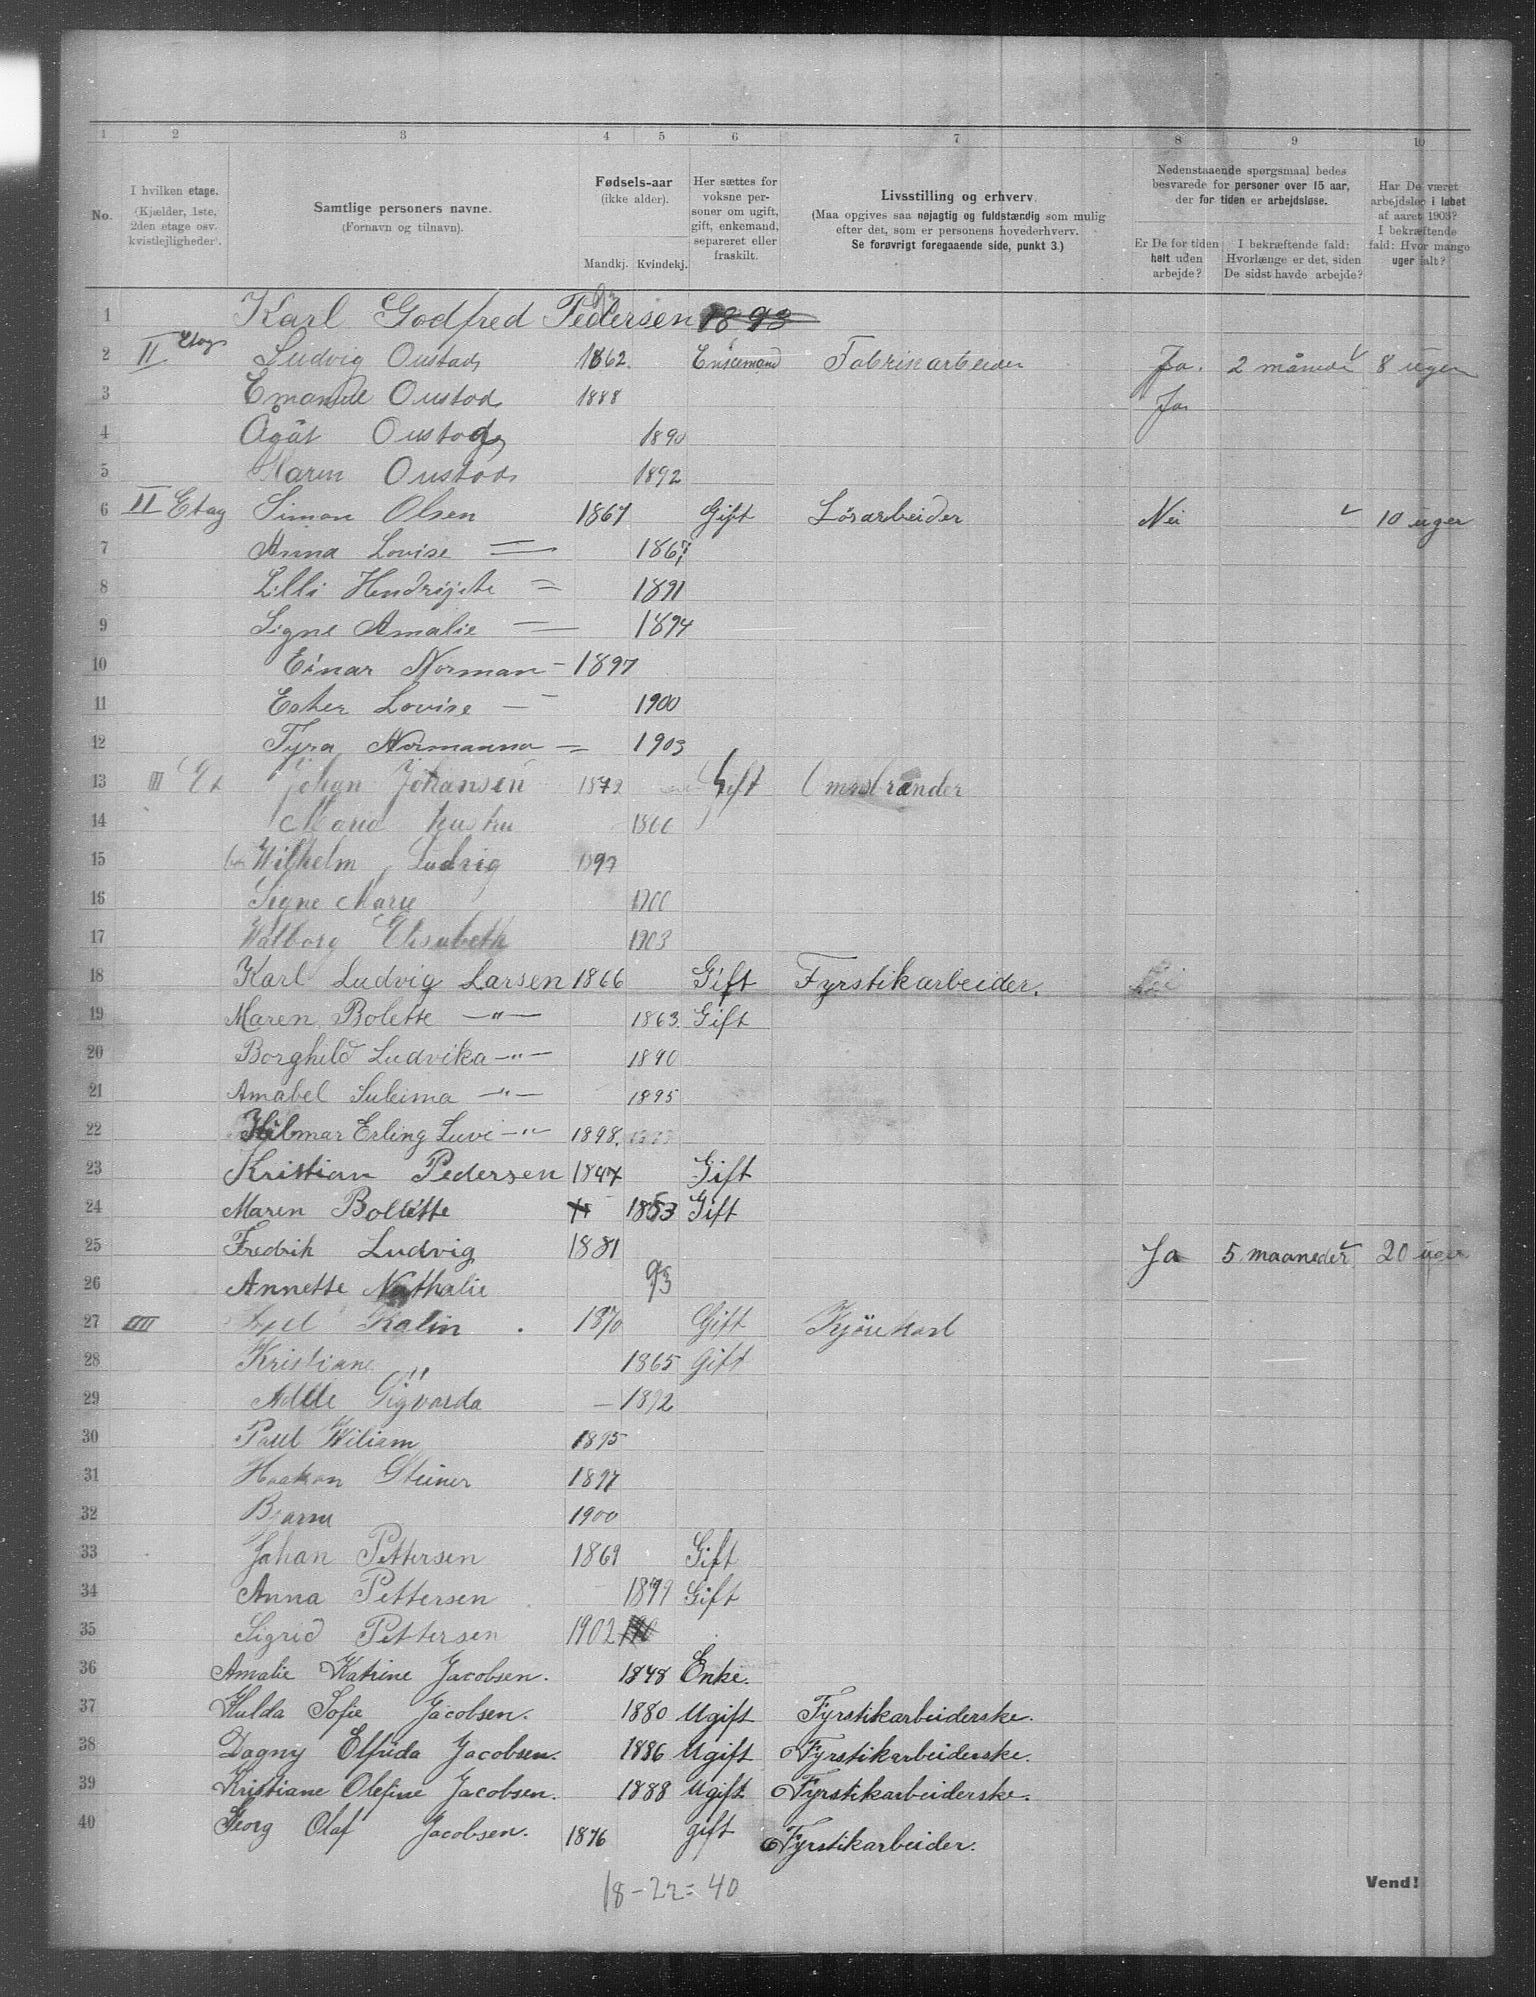 1 2 3 4 5 6 7 8 9 10
No.
I hvilken etage. (Kjælder, 1ste, 2den etage osv. kvistlejligheder).
Samtlige personers navne. (Fornavn og tilnavn).
Fødsels-aar (ikke alder).
Mandkj. Kvindekj.
Her sættes for voksne personer om ugift, gift, enkemand, separeret eller fraskilt.
Livsstilling og erhverv. (Maa opgives saa nøjagtig og fuldstændig som mulig efter det, som er personens hovederhverv. Se forøvrigt foregaaende side, punkt 3.)
Nedenstaaende spørgsmaal bedes besvarede for personer over 15 aar, der for tiden er arbejdsløse.
Er De for tiden helt uden arbejde?
I bekræftende fald: Hvorlænge er det, siden De sidst havde arbejde?
Har De været arbejdsløs i løbet af aaret 1903? I bekræftende fald: Hvor mange uger ialt?
1 Karl Godfred Pedersen 1893
2 II Etag Ludvig Oustad 1862. Enkemand Fabrikarbeider Ja. 2 måneder 8 uger
3 Emanuel Oustad 1888 Ja
4 Agåt Oustad 1890
5 Maren Oustad 1892
6 II Etag Simon Olsen 1867 Gift Lösarbeider Nei 10 uger
7 Anna Lovise 1867
8 Lilli Hendrijete 1891
9 Signe Amalie 1894
10 Einar Norman 1897
11 Ester Lovise 1900
12 Tyra Normanna 1903
13 III Et Johan Johansen 1872 Gift Omnsbrænder
14 Maria hustru 1866
15 Wilhelm Ludvig 1897
16 Signe Marie 1900
17 Walborg Elisabeth 1903
18 Karl Ludvig Larsen 1866 Gift Fyrstikarbeider. Nei
19 Maren Bolette —"— 1863. Gift
20 Borghild Ludvika —"— 1890
21 Amabel Suleima —"— 1895
22 Hilmar Erling Luvi —"— 1898.
23 Kristian Pedersen 1847 Gift
24 Maren Bollette 1853 Gift
25 Fredrik Ludvig 1881 Ja 5 maaneder 20 uger
26 Annette Nathalie 93
27 IIII Axel Kalin 1870 Gift Kjörekarl
28 Kristiane " 1865 Gift
29 Adele Sigvarda 1892
30 Paul Wiliam 1895
31 Haakon Steiner 1897
32 Bjarne 1900
33 Johan Pettersen 1869 Gift
34 Anna Pettersen 1879 Gift
35 Sigrid Pettersen 1902
36 Amalie Katrine Jacobsen. 1848 Enke.
37 Hulda Sofie Jacobsen. 1880 Ugift Fyrstikarbeiderske.
38 Dagny Elfrida Jacobsen. 1886 Ugift Fyrstikarbeiderske.
39 Kristiane Olefine Jacobsen. 1888 Ugift Fyrstikarbeiderske.
40 Georg Olaf Jacobsen. 1876 gift Fyrstikarbeider.
18-22=40
Vend!